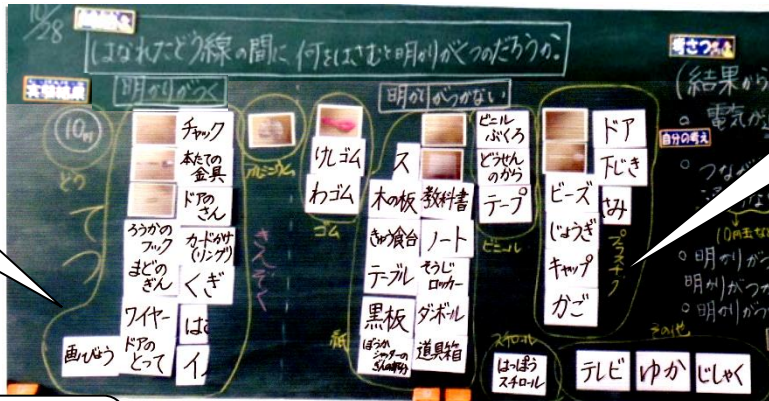 10/28
はなれたどう線の間に何をはさむと明かりがつくのだろうか。
実験結果
明かりがつく
10円
どう
てつ
チャック
本たての金具
ドアのさん
ろうかのフック
カードかけ(リング)
まどの
くぎ
ワイヤー
画びょう
ドアのとって
アルミニウム
きんぞく
明かりがつかない
けしゴム
わゴム
ゴム
ス
木の板
教科書
きゅう食台
ノート
テーブル
そうじロッカー
黒板
ダンボール
道具箱
紙
ビニルぶくろ
どうせんのから
テープ
ビニール
ドア
下じき
ビーズ
じょうぎ
キャップ
かご
プラスチック
スチロール
はっぽうスチロール
その他
テレビ
ゆか
じしゃく
考さつ
(結果から
○ 電気が
自分の考え
○ つなが
○ 明かりがつ
明かりがつか
○ 明かりが